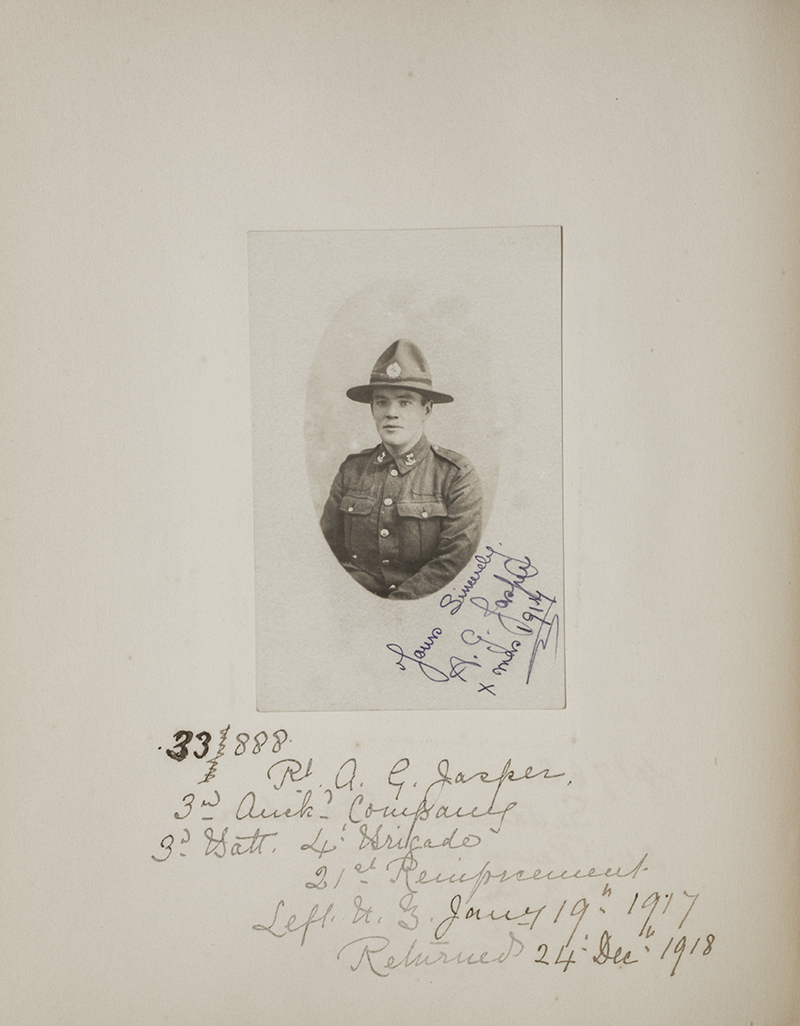 Yours Sincerely.
A. G. Jasper
Xmas 1917
33/888.
Pt. A. G. Jasper.
3rd Auckd Company
3d Batt. 4th Brigade
21st Reinforcement
Left N. Z. Jany 19th 1917
Returned 24th Decr 1918